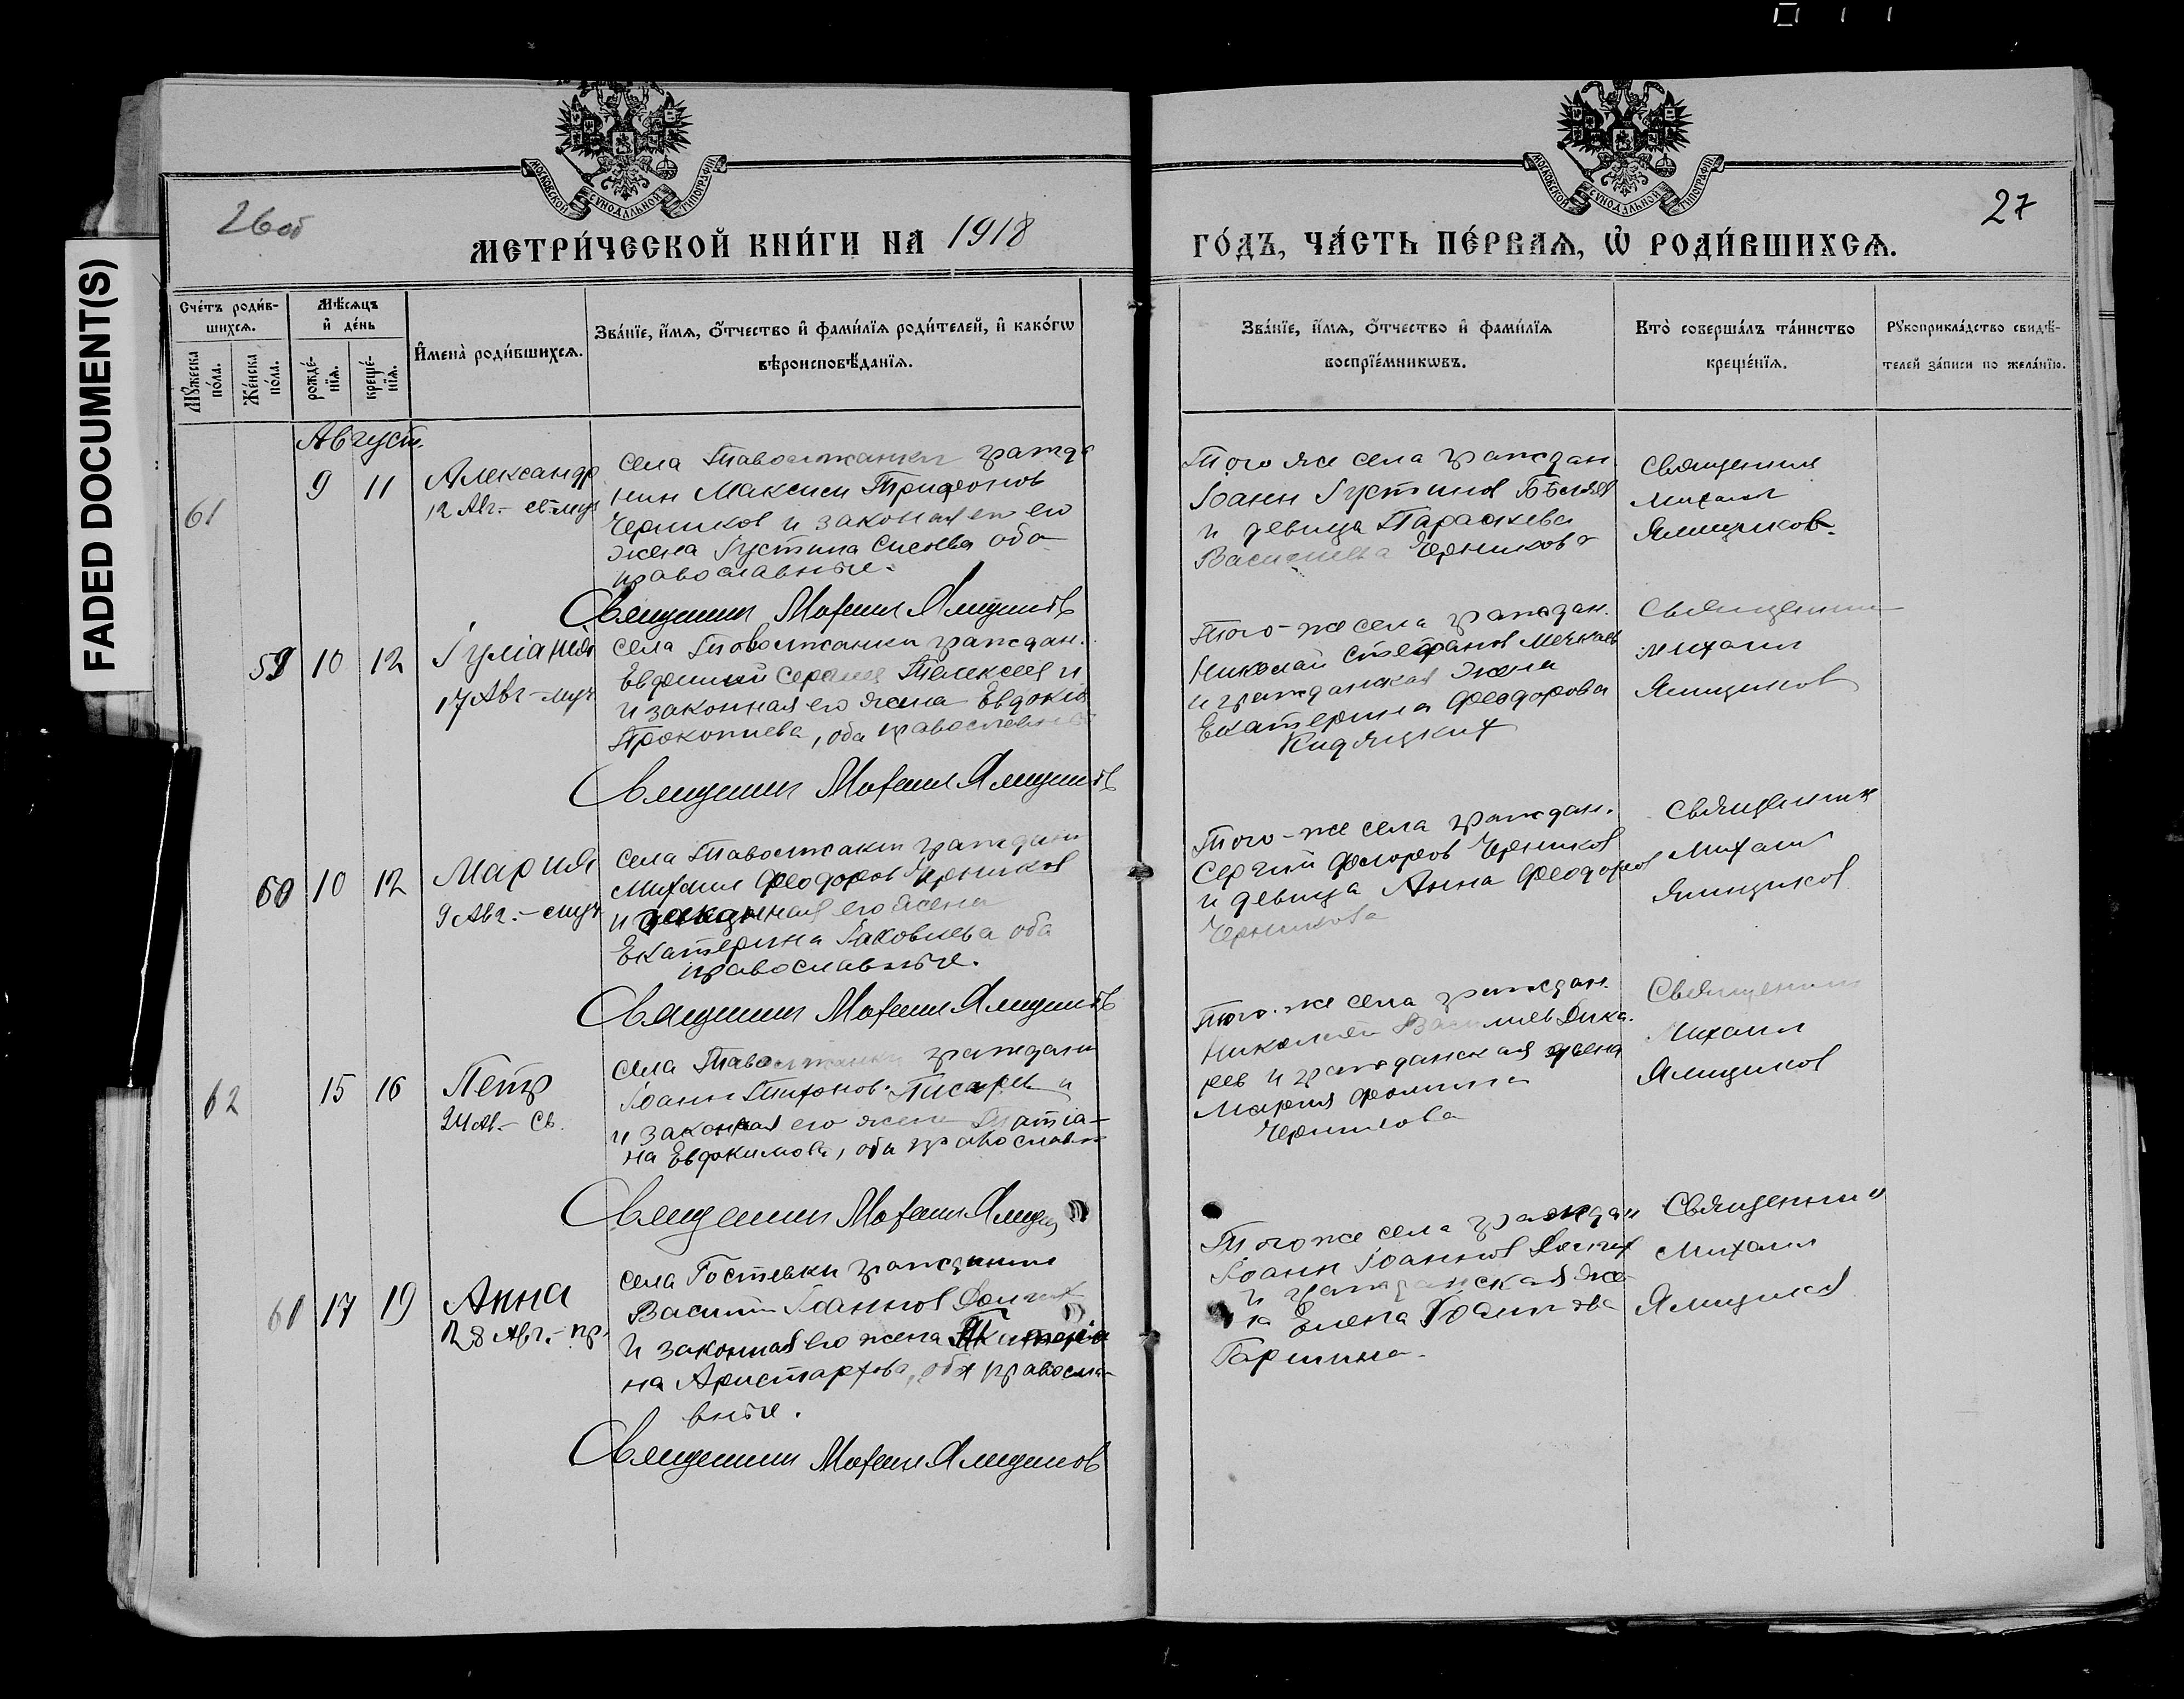 FADED DOCUMENT(S)
26об
27
МОСКОВСКОЙ СѴНОДАЛЬНОЙ ТИПОГРАФІИ
МОСКОВСКОЙ СѴНОДАЛЬНОЙ ТИПОГРАФІИ
МЕТРИ́ЧЕСКОЙ КНИ́ГИ НА 1918
ГО́ДЪ, ЧА́СТЬ ПЕ́РВАѦ, Ѡ҆ РОДИ́ВШИХСѦ.
Сче́тъ роди́в-
шихсѧ.
Мꙋ́жеска по́ла.
Же́нска по́ла.
Мѣ́сѧцъ
и҆ де́нь
рожде́-
нїѧ.
креще́-
нїѧ.
И҆мена̀ роди́вшихсѧ.
Зва́нїе, и҆́мѧ, ѻ҆́тчество и҆ фами́лїѧ роди́телей, и҆ како́гѡ
вѣроисповѣ́данїѧ.
Зва́нїе, и҆́мѧ, ѻ҆́тчество и҆ фами́лїѧ
воспрїе́мникѡвъ.
Кто̀ соверша́лъ та́инство
креще́нїѧ.
Рꙋкоприкла́дство свидѣ́-
телей за́писи по жела́нїю.
Август.
61
9 11
Александр
12 Авг. - св. муч
села Таволжанки гражда
нин Максим Трифонов
Черников и законная его
жена Іустина Сисоева оба
православные.
Священник Михаил Ямщиков
Того же села граждан.
Іоанн Іустинов Бѣляев
и девица Параскева
Васильева Черникова
Священник
Михаил
Ямщиков.
59 10 12
Іуліанія
17 Авг - муч
села Таволжанки граждан.
Евфимий Сергеев и
и законная его жена Евдокія
Прокопиева, оба православные
Священник Михаил Ямщиков
Того-же села граждан.
Николай Стефанов
и гражданская жена
Екатерина Феодорова
Священник
Михаил
Ямщиков
60 10 12
Мария
9 Авг. - муч
села Таволжанки граждани
Михаил Феодоров Черников
и законная его жена
Екатерина Іаковлева оба
православные.
Священник Михаил Ямщиков
Того-же села граждан.
Сергий Феодоров Черников
и девица Анна Феодоров
Черникова
Священник
Михаил
Ямщиков
62
15 16
Петр
24 Ав. - св.
села Таволжанки граждани
Іоанн Тихонов Писарев и
и законная его жена Татіа-
на Евдокимова, оба православн
Священник Михаил Ямщ
Того-же села граждан.
Николай Васильев Дика
рев и гражданская жена
Мария Фомина
Черникова
Священник
Михаил
Ямщиков
61 17 19
Анна
28 Авг. - пр.
села Гостевки гражданин
Василий Іоаннов Долгих
и законная его жена
на Аристархова, оба правосла-
вные.
Священник Михаил Ямщиков
Того же села граждан
Іоанн Іоаннов
и гражданская же-
на Елена Іоаннова
Гаршина.
Священник
Михаил
Ямщиков